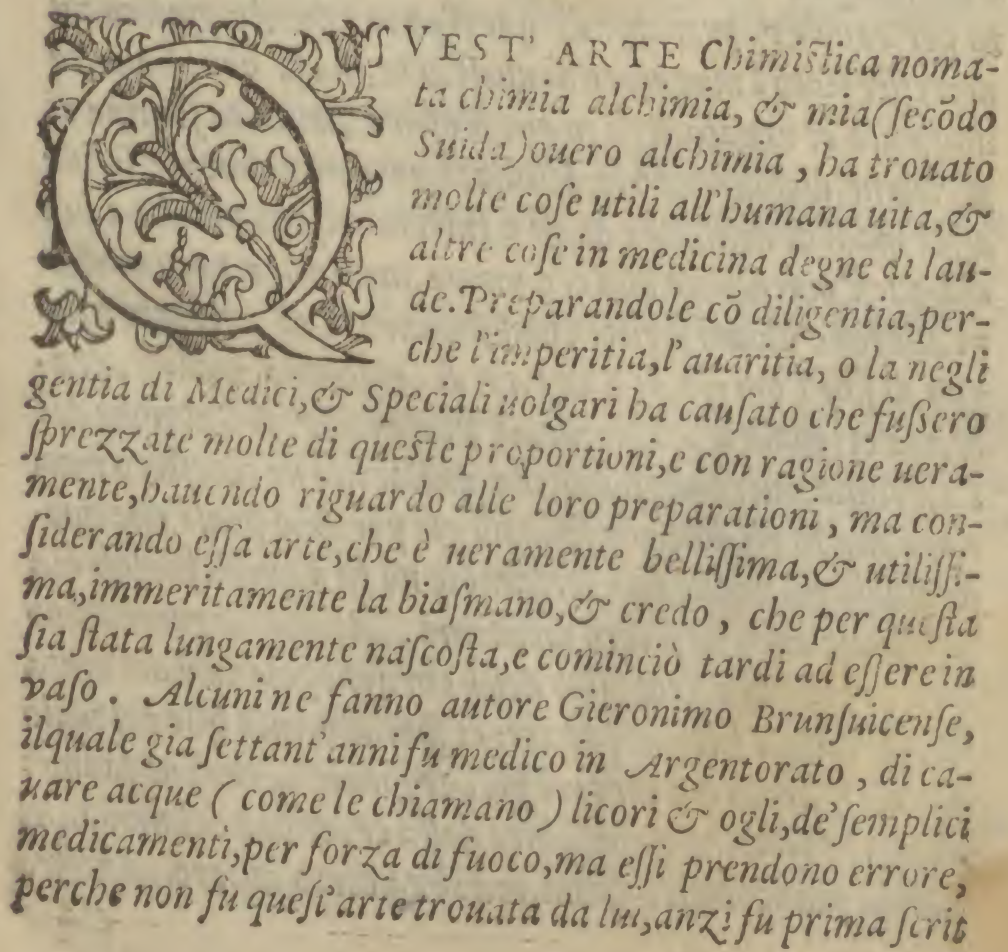 QVEST' ARTE Chimiſtica noma-
ta chimia alchimia, & mia(ſecõdo
Suida)ouero alchimia , ha trouato
molte coſe utili all'humana uita,&
altre coſe in medicina degne di lau-
de.Preparandole cõ diligentia,per-
che l'imperitia,l'auaritia, o la negli
gentia di Medici,& Speciali uolgari ha cauſato che fuſſero
ſprezzate molte di queſte proportioni,e con ragione uera-
mente,hauendo riguardo alle loro preparationi , ma con-
ſiderando eſſa arte,che è ueramente belliſſima,& utiliſſi-
ma,immeritamente la biaſmano,& credo , che per queſta
ſia ſtata lungamente naſcoſta,e cominciò tardi ad eſſere in
vaſo . Alcuni ne fanno autore Gieronimo Brunſuicenſe,
ilquale gia ſettant'anni fu medico in Argentorato , di ca-
uare acque ( come le chiamano ) licori & ogli,de' ſemplici
medicamenti,per forza di fuoco,ma eſſi prendono errore,
perche non fu queſt'arte trouata da lui,anzi fu prima ſcrit